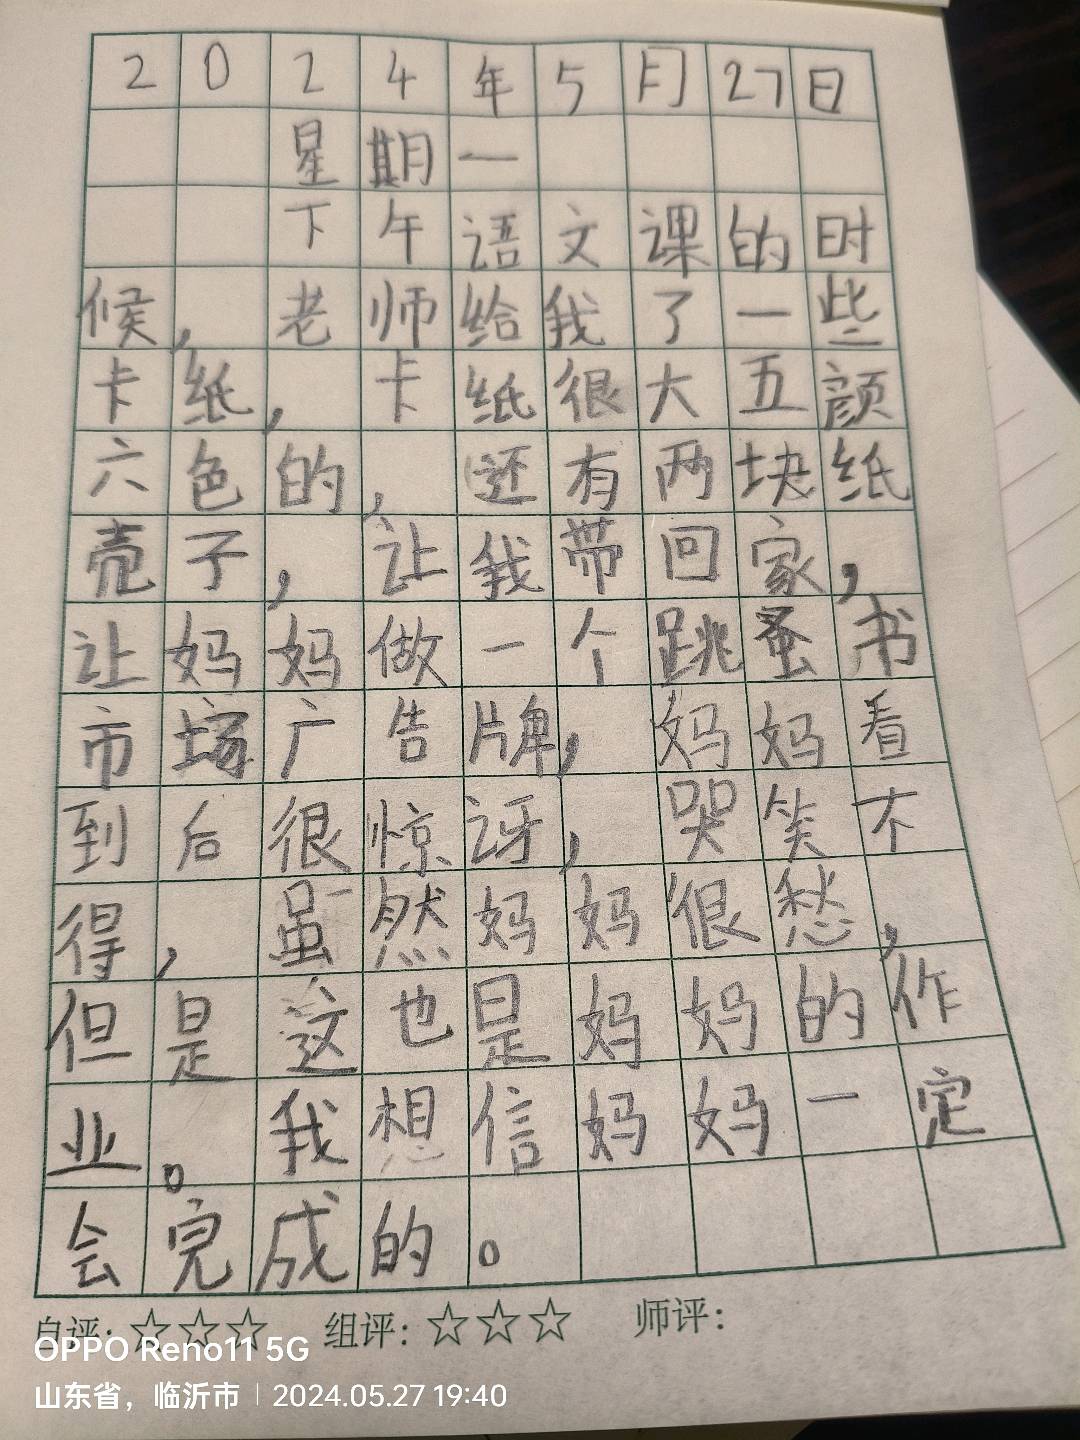 2024年5月27日
星期一
下午语文课的时
候，老师给我了一些
卡纸，卡纸很大五颜
六色的，还有两块纸
壳子，让我带回家，
让妈妈做一个跳蚤书
市场广告牌，妈妈看
到后很惊讶，哭笑不
得，虽然妈妈很愁，
但是这也是妈妈的作
业。我想信妈妈一定
会完成的。
自评：☆☆☆ 组评：☆☆☆ 师评：
OPPO Reno11 5G
山东省，临沂市 | 2024.05.27 19:40